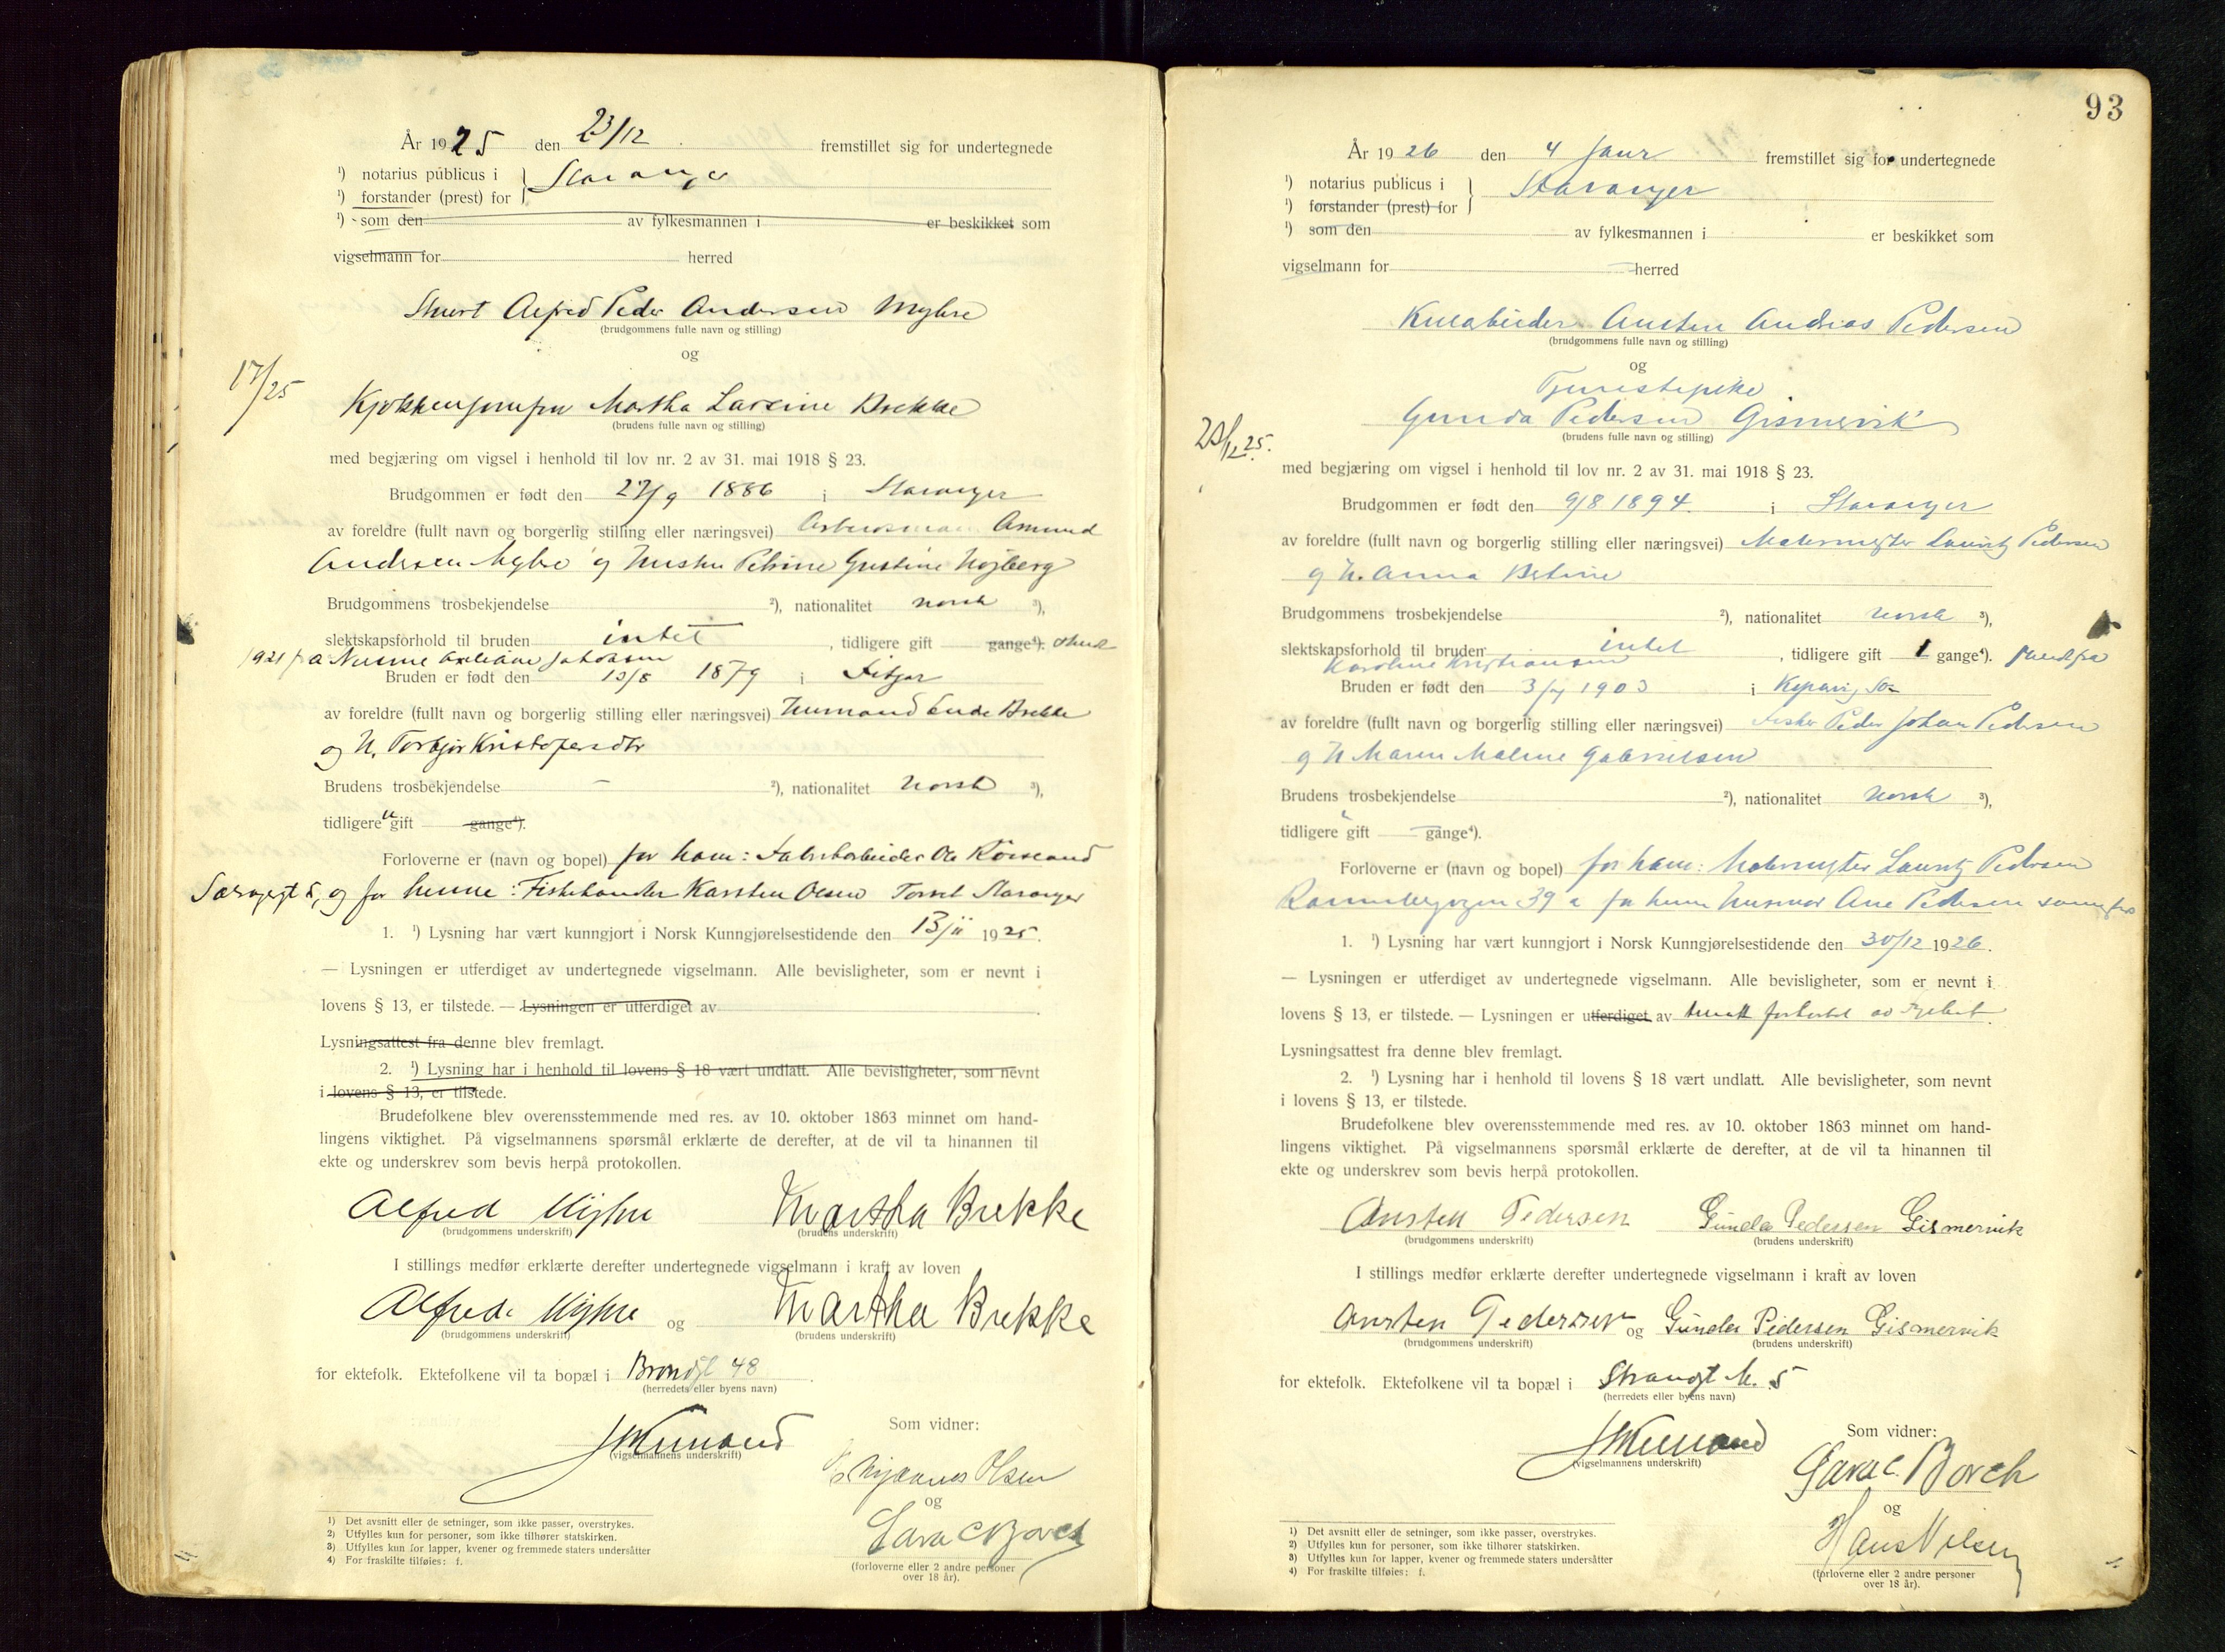 År 1925 den 23/12 fremstillet sig for undertegnede
¹) notarius publicus i
¹) forstander (prest) for } Stavanger
¹) som den av fylkesmannen i er beskikket som
vigselmann for herred
Alfred Peder Andersen Myhre
(brudgommens fulle navn og stilling)
og
17/25
Kjøkkenjomfru Martha Larsine Brekke
(brudens fulle navn og stilling)
med begjæring om vigsel i henhold til lov nr. 2 av 31. mai 1918 § 23.
Brudgommen er født den 27/9 1886 i Stavanger
av foreldre (fullt navn og borgerlig stilling eller næringsvei) Arbeidsmann Amund
Andersen Myhre og hustru Petrine Gustine
Brudgommens trosbekjendelse ²), nationalitet norsk ³),
slektskapsforhold til bruden intet , tidligere gift gange⁴). skilt
1921 fra
Bruden er født den 13/8 1879 i Fitjar
av foreldre (fullt navn og borgerlig stilling eller næringsvei) Brekke
og H. Torbjør Kristofersdtr
Brudens trosbekjendelse – ²), nationalitet norsk ³),
tidligere u gift gange⁴).
Forloverne er (navn og bopel) for ham: Fabrikarbeider Ole
og for henne: Fiskehandler Karsten Olsen Torvet Stavanger
1. ¹) Lysning har vært kunngjort i Norsk Kunngjørelsestidende den 13/11 1925.
— Lysningen er utferdiget av undertegnede vigselmann. Alle bevisligheter, som er nevnt i
lovens § 13, er tilstede. — Lysningen er utferdiget av
Lysningsattest fra denne blev fremlagt.
2. ¹) Lysning har i henhold til lovens § 18 vært undlatt. Alle bevisligheter, som nevnt
i lovens § 13, er tilstede.
Brudefolkene blev overensstemmende med res. av 10. oktober 1863 minnet om hand-
lingens viktighet. På vigselmannens spørsmål erklærte de derefter, at de vil ta hinannen til
ekte og underskrev som bevis herpå protokollen.
Alfred Myhre Martha Brekke
(brudgommens underskrift) (brudens underskrift)
I stillings medfør erklærte derefter undertegnede vigselmann i kraft av loven
Alfred Myhre og Martha Brekke
(brudgommens underskrift) (brudens underskrift)
for ektefolk. Ektefolkene vil ta bopæl i 48
(herredets eller byens navn)
(vigselmannens underskrift)
Som vidner:
Olsen
og
Sara C Borch
(forloverne eller 2 andre personer
over 18 år).
1) Det avsnitt eller de setninger, som ikke passer, overstrykes.
2) Utfylles kun for personer, som ikke tilhører statskirken.
3) Utfylles kun for lapper, kvener og fremmede staters undersåtter
4) For fraskilte tilføies: f.
93
År 1926 den 4 Januar fremstillet sig for undertegnede
¹) notarius publicus i
¹) forstander (prest) for } Stavanger
¹) som den av fylkesmannen i er beskikket som
vigselmann for herred
Austen Andreas Pedersen
(brudgommens fulle navn og stilling)
og
Tjenestepike
Gunda Pedersen Gismervik
(brudens fulle navn og stilling)
med begjæring om vigsel i henhold til lov nr. 2 av 31. mai 1918 § 23.
Brudgommen er født den 9/8 1894. i Stavanger
av foreldre (fullt navn og borgerlig stilling eller næringsvei) Malermester Lauritz Pedersen
og H. Anna Betine
Brudgommens trosbekjendelse ²), nationalitet norsk ³),
slektskapsforhold til bruden intet , tidligere gift 1 gange⁴). skilt fra
Karoline Kristiansen
Bruden er født den 1903 i
av foreldre (fullt navn og borgerlig stilling eller næringsvei) Fisker Peder Johan Pedersen
og H Maren Malene Gabrielsen
Brudens trosbekjendelse ²), nationalitet norsk ³),
tidligere u gift gange⁴).
Forloverne er (navn og bopel) for ham: Malermester Lauritz Pedersen
39 for henne Husmor Ane Pedersen
1. ¹) Lysning har vært kunngjort i Norsk Kunngjørelsestidende den 30/12 1926.
— Lysningen er utferdiget av undertegnede vigselmann. Alle bevisligheter, som er nevnt i
lovens § 13, er tilstede. — Lysningen er utferdiget av
Lysningsattest fra denne blev fremlagt.
2. ¹) Lysning har i henhold til lovens § 18 vært undlatt. Alle bevisligheter, som nevnt
i lovens § 13, er tilstede.
Brudefolkene blev overensstemmende med res. av 10. oktober 1863 minnet om hand-
lingens viktighet. På vigselmannens spørsmål erklærte de derefter, at de vil ta hinannen til
ekte og underskrev som bevis herpå protokollen.
Austen Pedersen Gunda Pedersen Gismervik
(brudgommens underskrift) (brudens underskrift)
I stillings medfør erklærte derefter undertegnede vigselmann i kraft av loven
Austen Pedersen og Gunda Pedersen Gismervik
(brudgommens underskrift) (brudens underskrift)
for ektefolk. Ektefolkene vil ta bopæl i Strandgt N. 5
(herredets eller byens navn)
(vigselmannens underskrift)
Som vidner:
Sara C. Borch
og
Hans Nilsen
(forloverne eller 2 andre personer
over 18 år).
1) Det avsnitt eller de setninger, som ikke passer, overstrykes.
2) Utfylles kun for personer, som ikke tilhører statskirken.
3) Utfylles kun for lapper, kvener og fremmede staters undersåtter
4) For fraskilte tilføies: f.